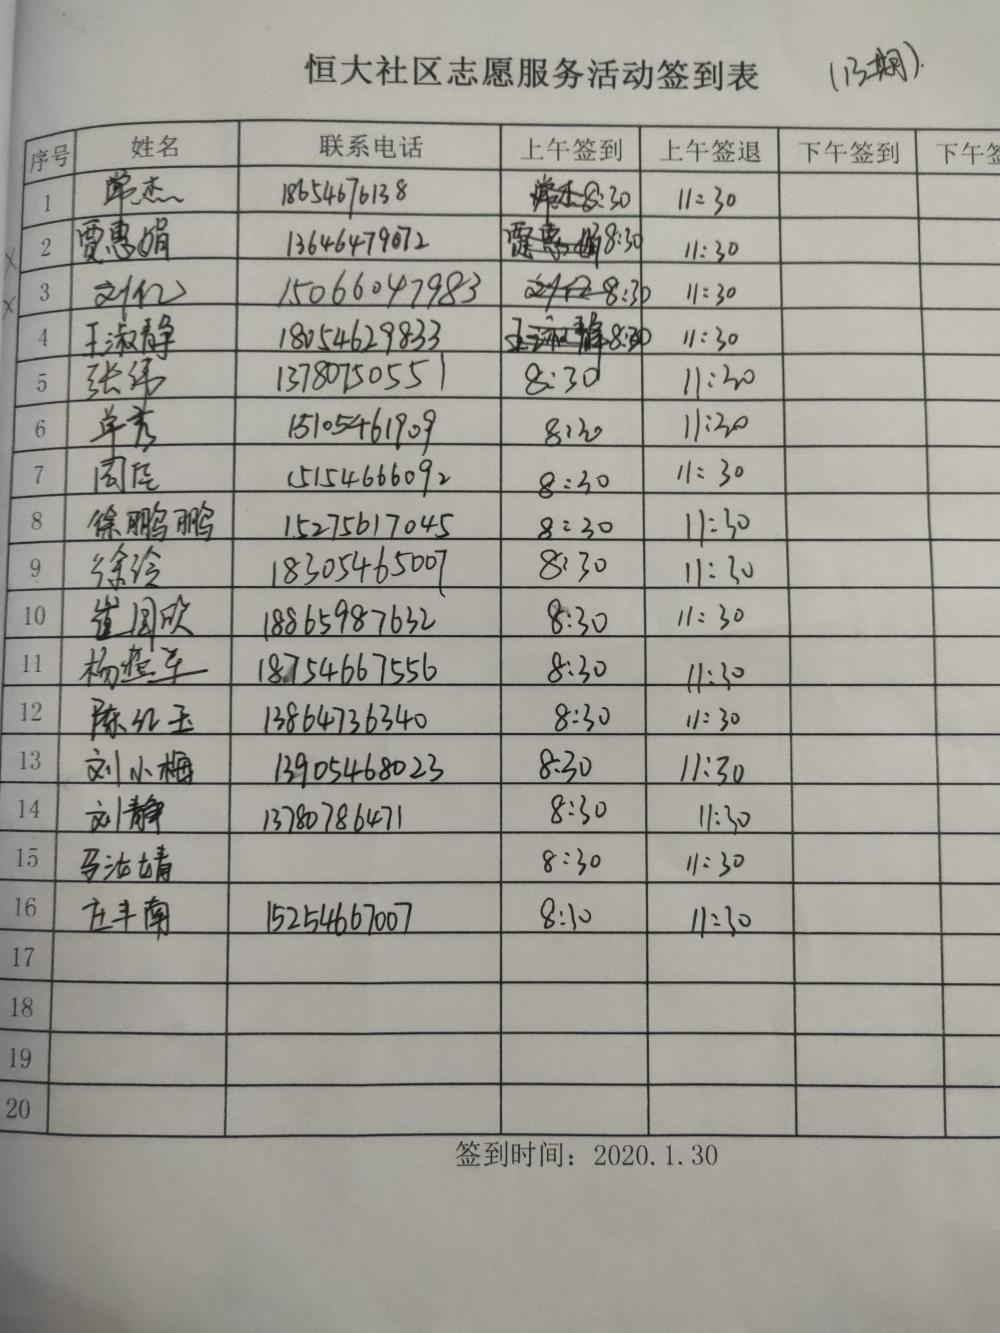 恒大社区志愿服务活动签到表 (13期).
序号 姓名 联系电话 上午签到 上午签退 下午签到 下午签
1 常杰 18654676138 常杰 8:30 11:30
2 贾惠娟 13646479072 贾惠娟 8:30 11:30
3 刘仁 15066047983 刘仁 8:30 11:30
4 王淑静 18054629833 王淑静 8:30 11:30
5 张纬 13780750551 8:30 11:30
6 单秀 15105461909 8:30 11:30
7 15154666092 8:30 11:30
8 徐鹏鹏 15275617045 8:30 11:30
9 徐玲 18305465007 8:30 11:30
10 崔国欣 18865987632 8:30 11:30
11 杨 军 18754667556 8:30 11:30
12 陈红玉 13864736340 8:30 11:30
13 刘小梅 13905468023 8:30 11:30
14 刘静 13780786471 8:30 11:30
15 马 婧 8:30 11:30
16 庄丰南 15254667007 8:30 11:30
17
18
19
20
签到时间：2020.1.30